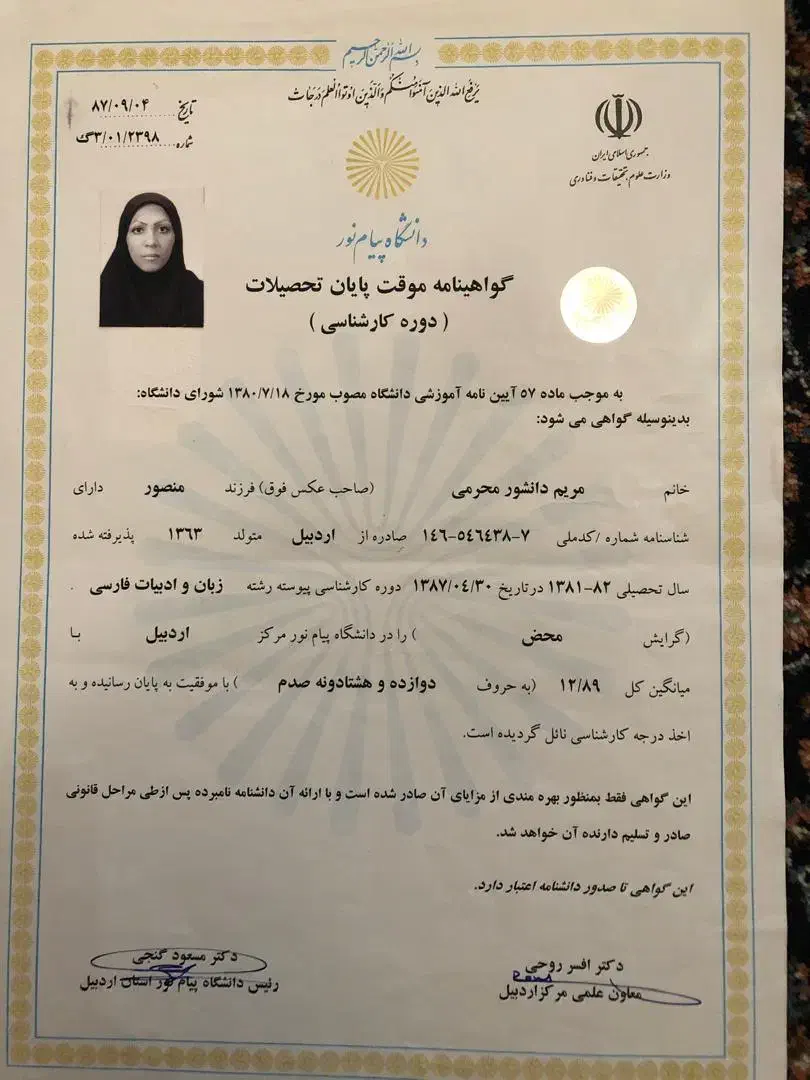 بسم الله الرحمن الرحیم
یرفع الله الذین آمنوا منکم والذین اوتوا العلم درجات
جمهوری اسلامی ایران
وزارت علوم، تحقیقات و فناوری
تاریخ ۸۷/۰۹/۰۴
شماره ۳/۰۱/۲۳۹۸گ
دانشگاه پیام نور
گواهینامه موقت پایان تحصیلات
( دوره کارشناسی )
به موجب ماده ۵۷ آیین نامه آموزشی دانشگاه مصوب مورخ ۱۳۸۰/۷/۱۸ شورای دانشگاه:
بدینوسیله گواهی می شود:
خانم مریم دانشور محرمی (صاحب عکس فوق) فرزند منصور دارای
شناسنامه شماره /کدملی ۱۴۶-۵۴۶۴۳۸-۷ صادره از اردبیل متولد ۱۳۶۳ پذیرفته شده
سال تحصیلی ۸۲-۱۳۸۱ در تاریخ ۱۳۸۷/۰۴/۳۰ دوره کارشناسی پیوسته رشته زبان و ادبیات فارسی .
(گرایش محض ) را در دانشگاه پیام نور مرکز اردبیل با
میانگین کل ۱۲/۸۹ (به حروف دوازده و هشتادونه صدم ) با موفقیت به پایان رسانیده و به
اخذ درجه کارشناسی نائل گردیده است.
این گواهی فقط بمنظور بهره مندی از مزایای آن صادر شده است و با ارائه آن دانشنامه نامبرده پس ازطی مراحل قانونی
صادر و تسلیم دارنده آن خواهد شد.
این گواهی تا صدور دانشنامه اعتبار دارد.
دکتر افسر روحی
معاون علمی مرکز اردبیل
دکتر مسعود گنجی
رئیس دانشگاه پیام نور استان اردبیل